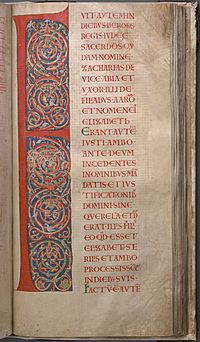 VIT AVTEM IN
DIEBVS HERODIS
REGIS IVDEE
SACERDOS QVI
DAM NOMINE
ZACHARIAS DE
VICE ABIA ET
VXOR ILLI DE
FILIABVS AARO
ET NOMEN EI
ELIZABETH
ERANT AVTE
IVSTI AMBO
ANTE DEVM
INCEDENTES
IN OMNIBVS MA
DATIS ET IVS
TIFICATIONIB
DOMINI SINE
QVERELA ET N
ERAT ILLIS FILI
EO QD ESSET
ELIZABET STE
RILIS ET AMBO
PROCESSISSET
IN DIEB SVIS
FACTV E AVTE